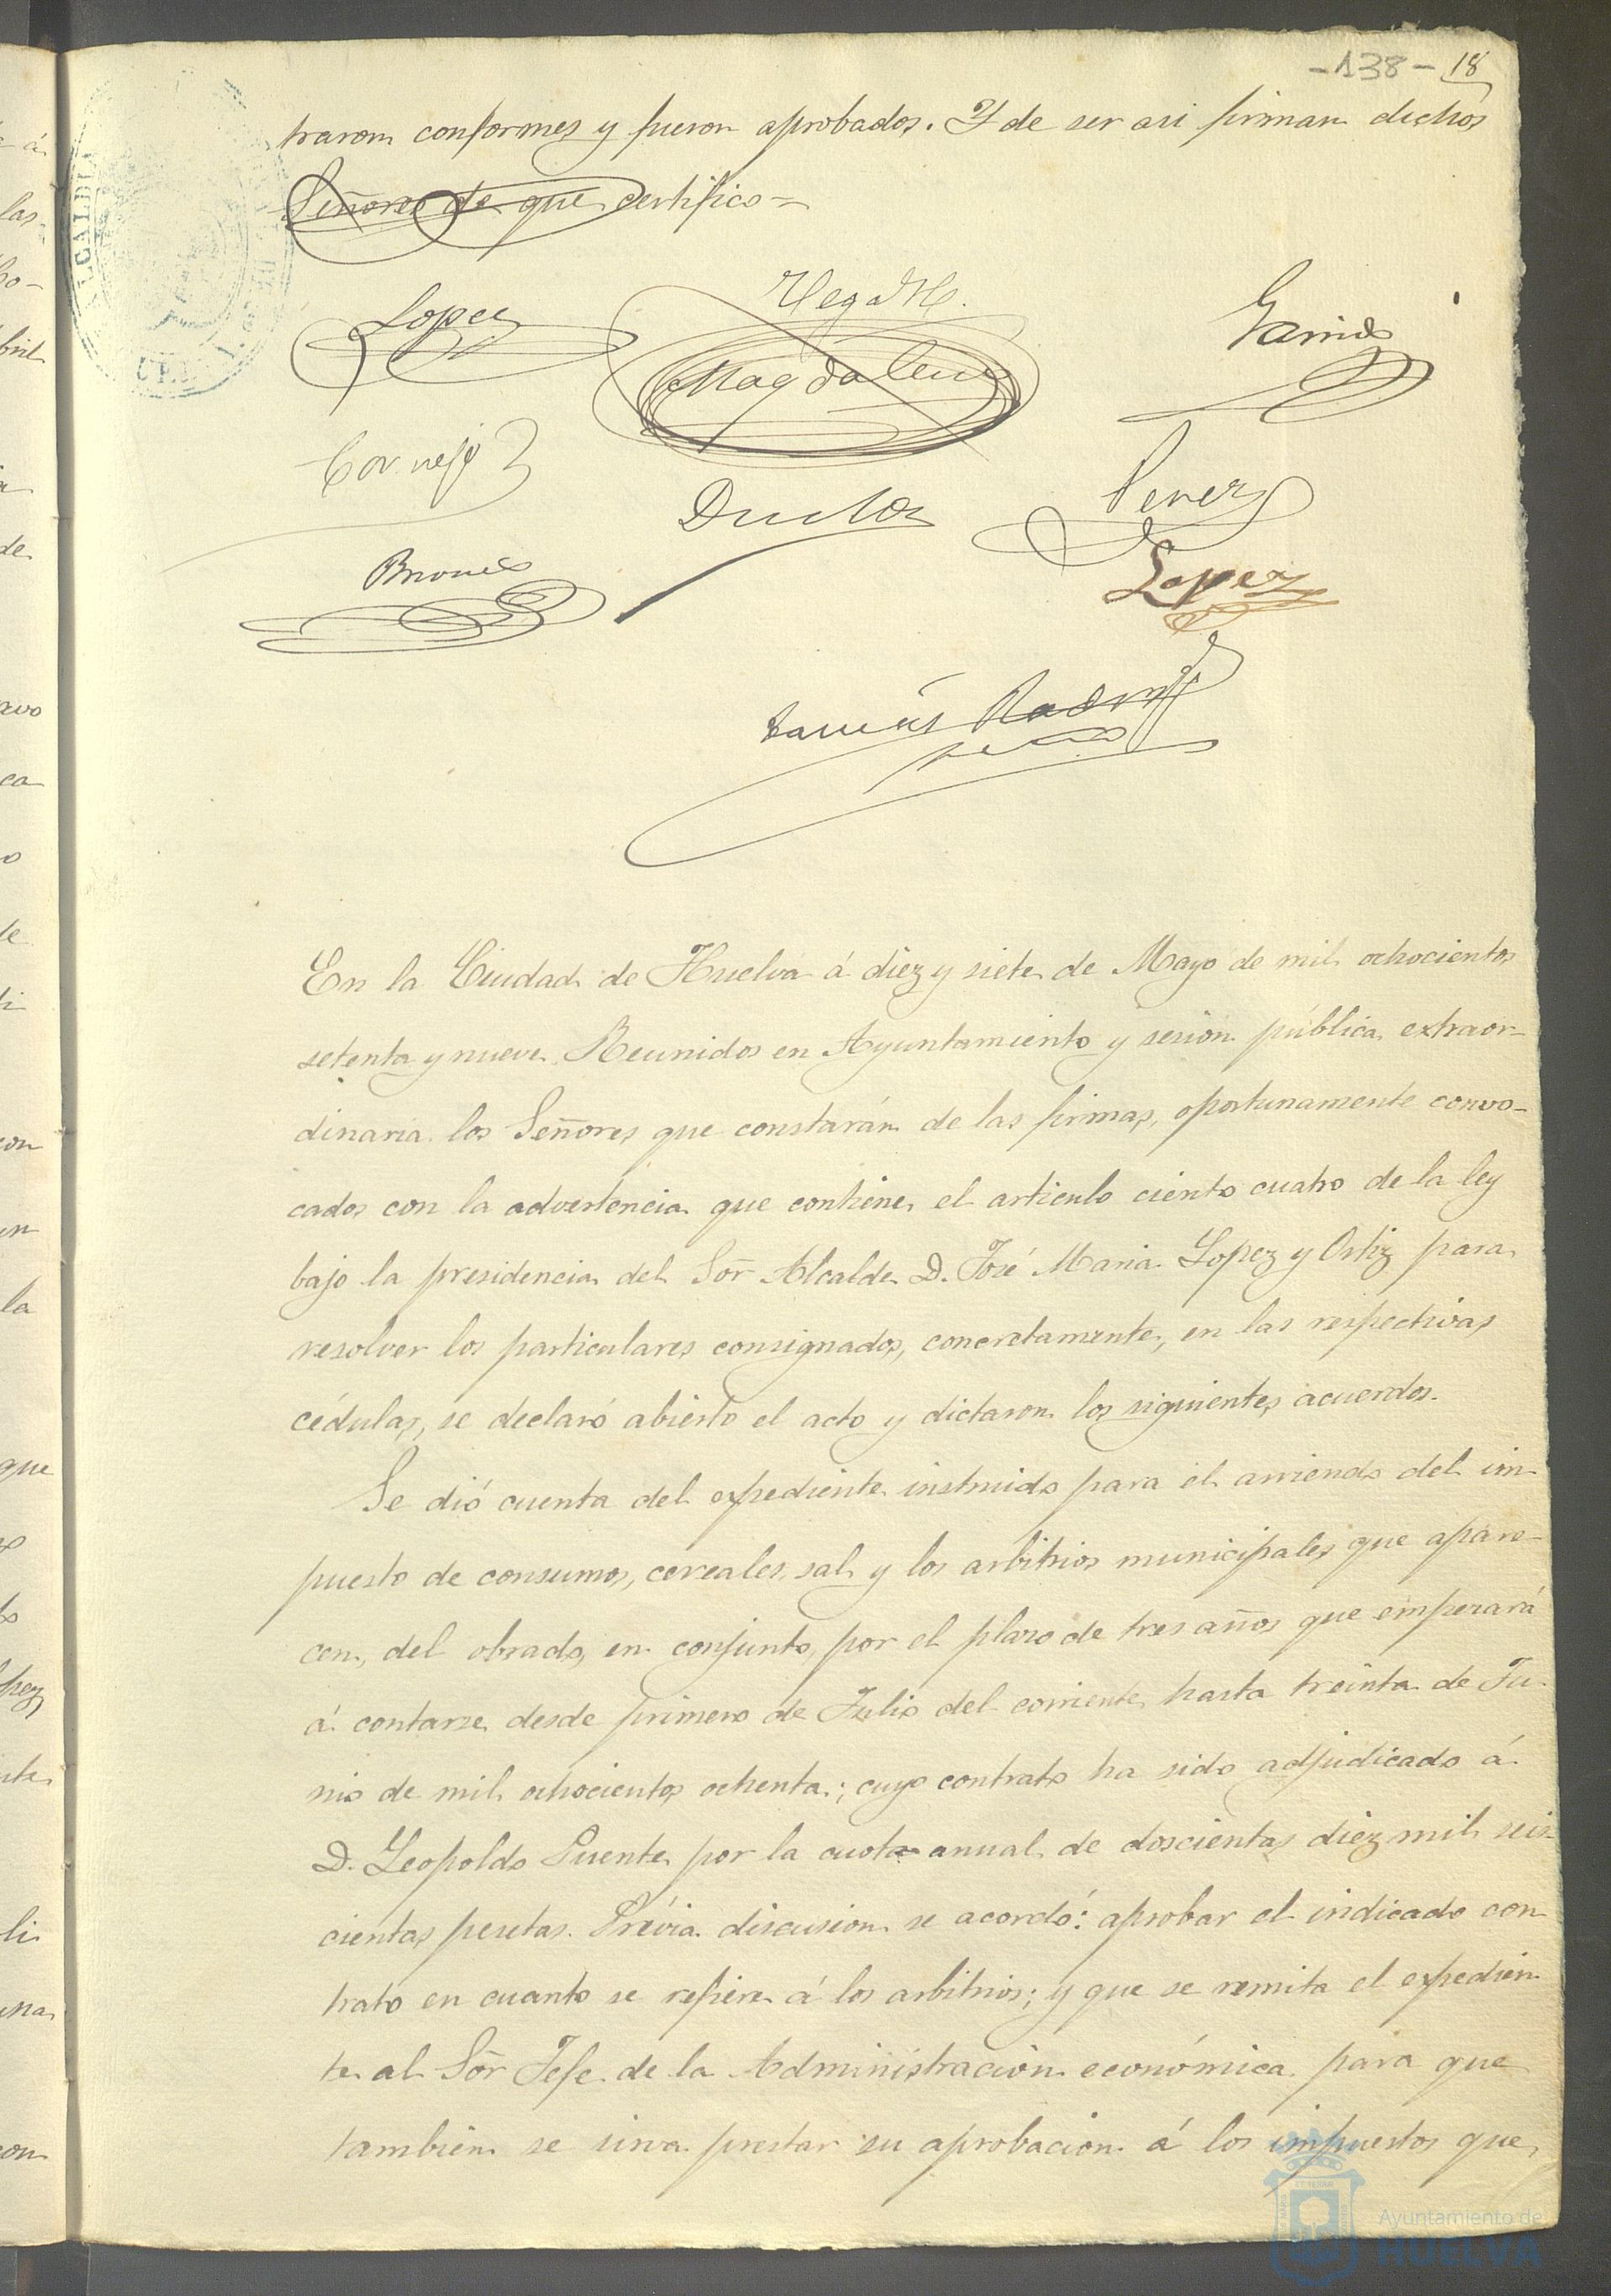 -138- 18
traron conformes y fueron aprobados. Y de ser asi firman dichos
Señores de que certifico=
Lopez
Vega M.
Garrido
Magdalena
Cornejo
Perez
Briones
Lopez
Tomás Rodrig
En la Ciudad de Huelva á diez y siete de Mayo de mil ochocientos
setenta y nueve. Reunidos en Ayuntamiento y sesion pública extraor-
dinaria los Señores que constarán de las firmas, oportunamente convo-
cados con la advertencia que contiene el articulo ciento cuatro de la ley
bajo la presidencia del Sor Alcalde D. José Maria Lopez y Ortiz para
resolver los particulares consignados, concretamente, en las respectivas
cédulas, se declaró abierto el acto y dictaron los siguientes acuerdos.
Se dió cuenta del expediente instruido para el arriendo del im-
puesto de consumos, cereales, sal y los arbitrios municipales que apare-
cen, del obrado, en conjunto, por el plazo de tres años que empezará
á contarse desde primero de Julio del corriente hasta treinta de Ju-
nio de mil ochocientos ochenta; cuyo contrato ha sido adjudicado á
D. Leopoldo Puente por la cuota anual de doscientas diez mil seis-
cientas pesetas. Prévia discusion se acordó: aprobar el indicado con-
trato en cuanto se refiere á los arbitrios; y que se remita el expedien-
te al Sor Jefe de la Administracion económica para que
tambien se sirva prestar su aprobacion á los impuestos que
Ayuntamiento de
HUELVA